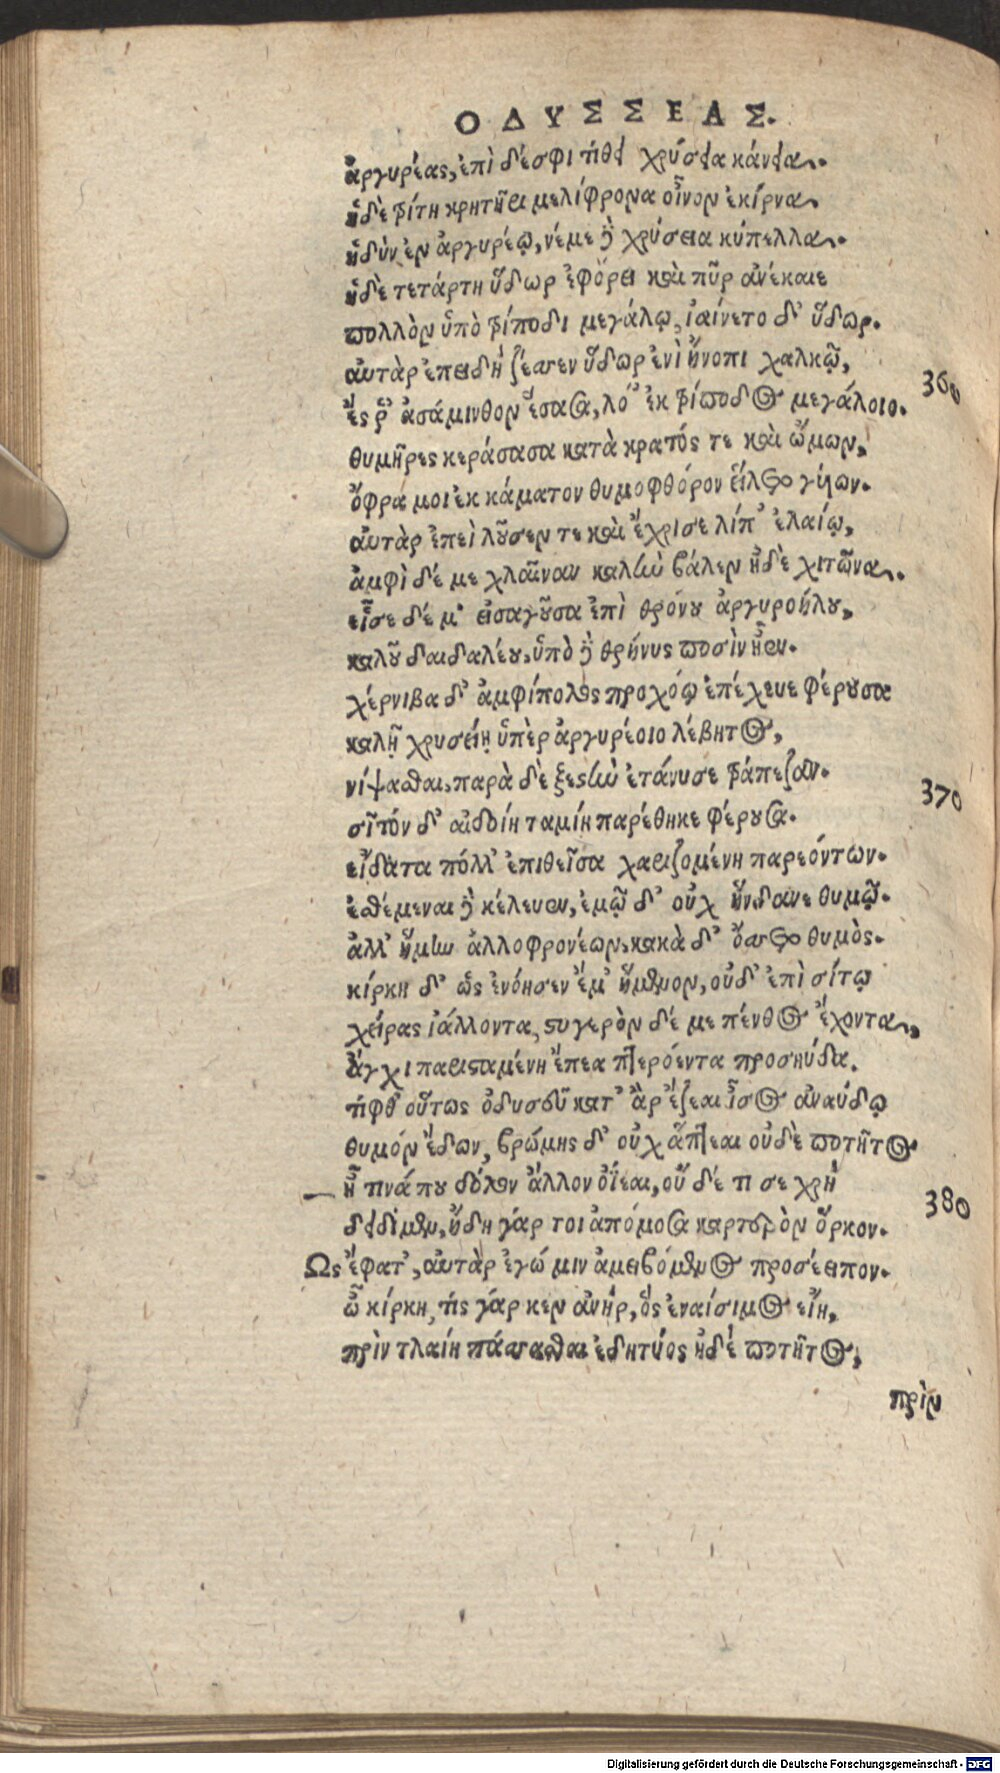 ΟΔΥΣΣΕΑΣ.
ἀργυρέας, ἐπὶ δέ σφι τίθει χρύσεια κάνεια.
ἡ δὲ τρίτη κρητῆρι μελίφρονα οἶνον ἐκίρνα.
ἡδὺν ἐν ἀργυρέῳ, νέμε δὲ χρύσεια κύπελλα.
ἡ δὲ τετάρτη ὕδωρ ἐφόρει καὶ πῦρ ἀνέκαιε
πολλὸν ὑπὸ τρίποδι μεγάλῳ, ἰαίνετο δ' ὕδωρ.
αὐτὰρ ἐπειδὴ ζέσσεν ὕδωρ ἐνὶ ἤνοπι χαλκῷ,
360
ἔς ῥ' ἀσάμινθον ἕσασα, λό' ἐκ τρίποδος μεγάλοιο.
θυμῆρες κεράσασα κατὰ κρατός τε καὶ ὤμων,
ὄφρα μοι ἐκ κάματον θυμοφθόρον εἵλετο γύων.
αὐτὰρ ἐπεὶ λοῦσεν τε καὶ ἔχρισε λίπ' ἐλαίῳ,
ἀμφὶ δέ με χλαῖναν καλὴν βάλεν ἠδὲ χιτῶνα.
εἷσε δέ μ' εἰσαγοῦσα ἐπὶ θρόνου ἀργυροήλου,
καλοῦ δαιδαλέου, ὑπὸ δὲ θρήνυς ποσὶν ἦεν.
χέρνιβα δ' ἀμφίπολος προχόῳ ἐπέχευε φέρουσα
καλῇ χρυσείῃ ὑπὲρ ἀργυρέοιο λέβητος,
νίψασθαι, παρὰ δὲ ξεστὴν ἐτάνυσε τράπεζαν.
370
σῖτόν δ' αἰδοίη ταμίη παρέθηκε φέρουσα.
εἴδατα πόλλ' ἐπιθεῖσα χαριζομένη παρεόντων.
ἐσθέμεναι δὲ κέλευεν, ἐμῷ δ' οὐχ ἥνδανε θυμῷ.
ἀλλ' ἥμην ἀλλοφρονέων, κακὰ δ' ὄσσετο θυμὸς.
κίρκη δ' ὡς ἐνόησεν ἔμ' ἥμενον, οὐδ' ἐπὶ σίτῳ
χεῖρας ἰάλλοντα, στυγερὸν δέ με πένθος ἔχοντα,
ἄγχι παρισταμένη ἔπεα πτερόεντα προσηύδα.
τίφθ' οὕτως ὀδυσσεῦ κατ' ἂρ' ἕζεαι ἶσος ἀναύδῳ
θυμόν ἔδων, βρώμης δ' οὐχ ἅπτεαι οὐδὲ ποτῆτος
ἦ τινά που δόλον ἄλλον ὀΐεαι, οὐδέ τι σε χρὴ
380
δειδίμεν, ἤδη γάρ τοι ἀπόμοσα καρτερὸν ὅρκον.
Ως ἔφατ', αὐτὰρ ἐγώ μιν ἀμειβόμενος προσέειπον.
ὦ κίρκη, τίς γάρ κεν ἀνὴρ, ὃς ἐναίσιμος εἴη,
πρὶν τλαίη πάσσασθαι ἐδητύος ἠδέ ποτῆτος,
πρὶν
Digitalisierung gefördert durch die Deutsche Forschungsgemeinschaft - DFG